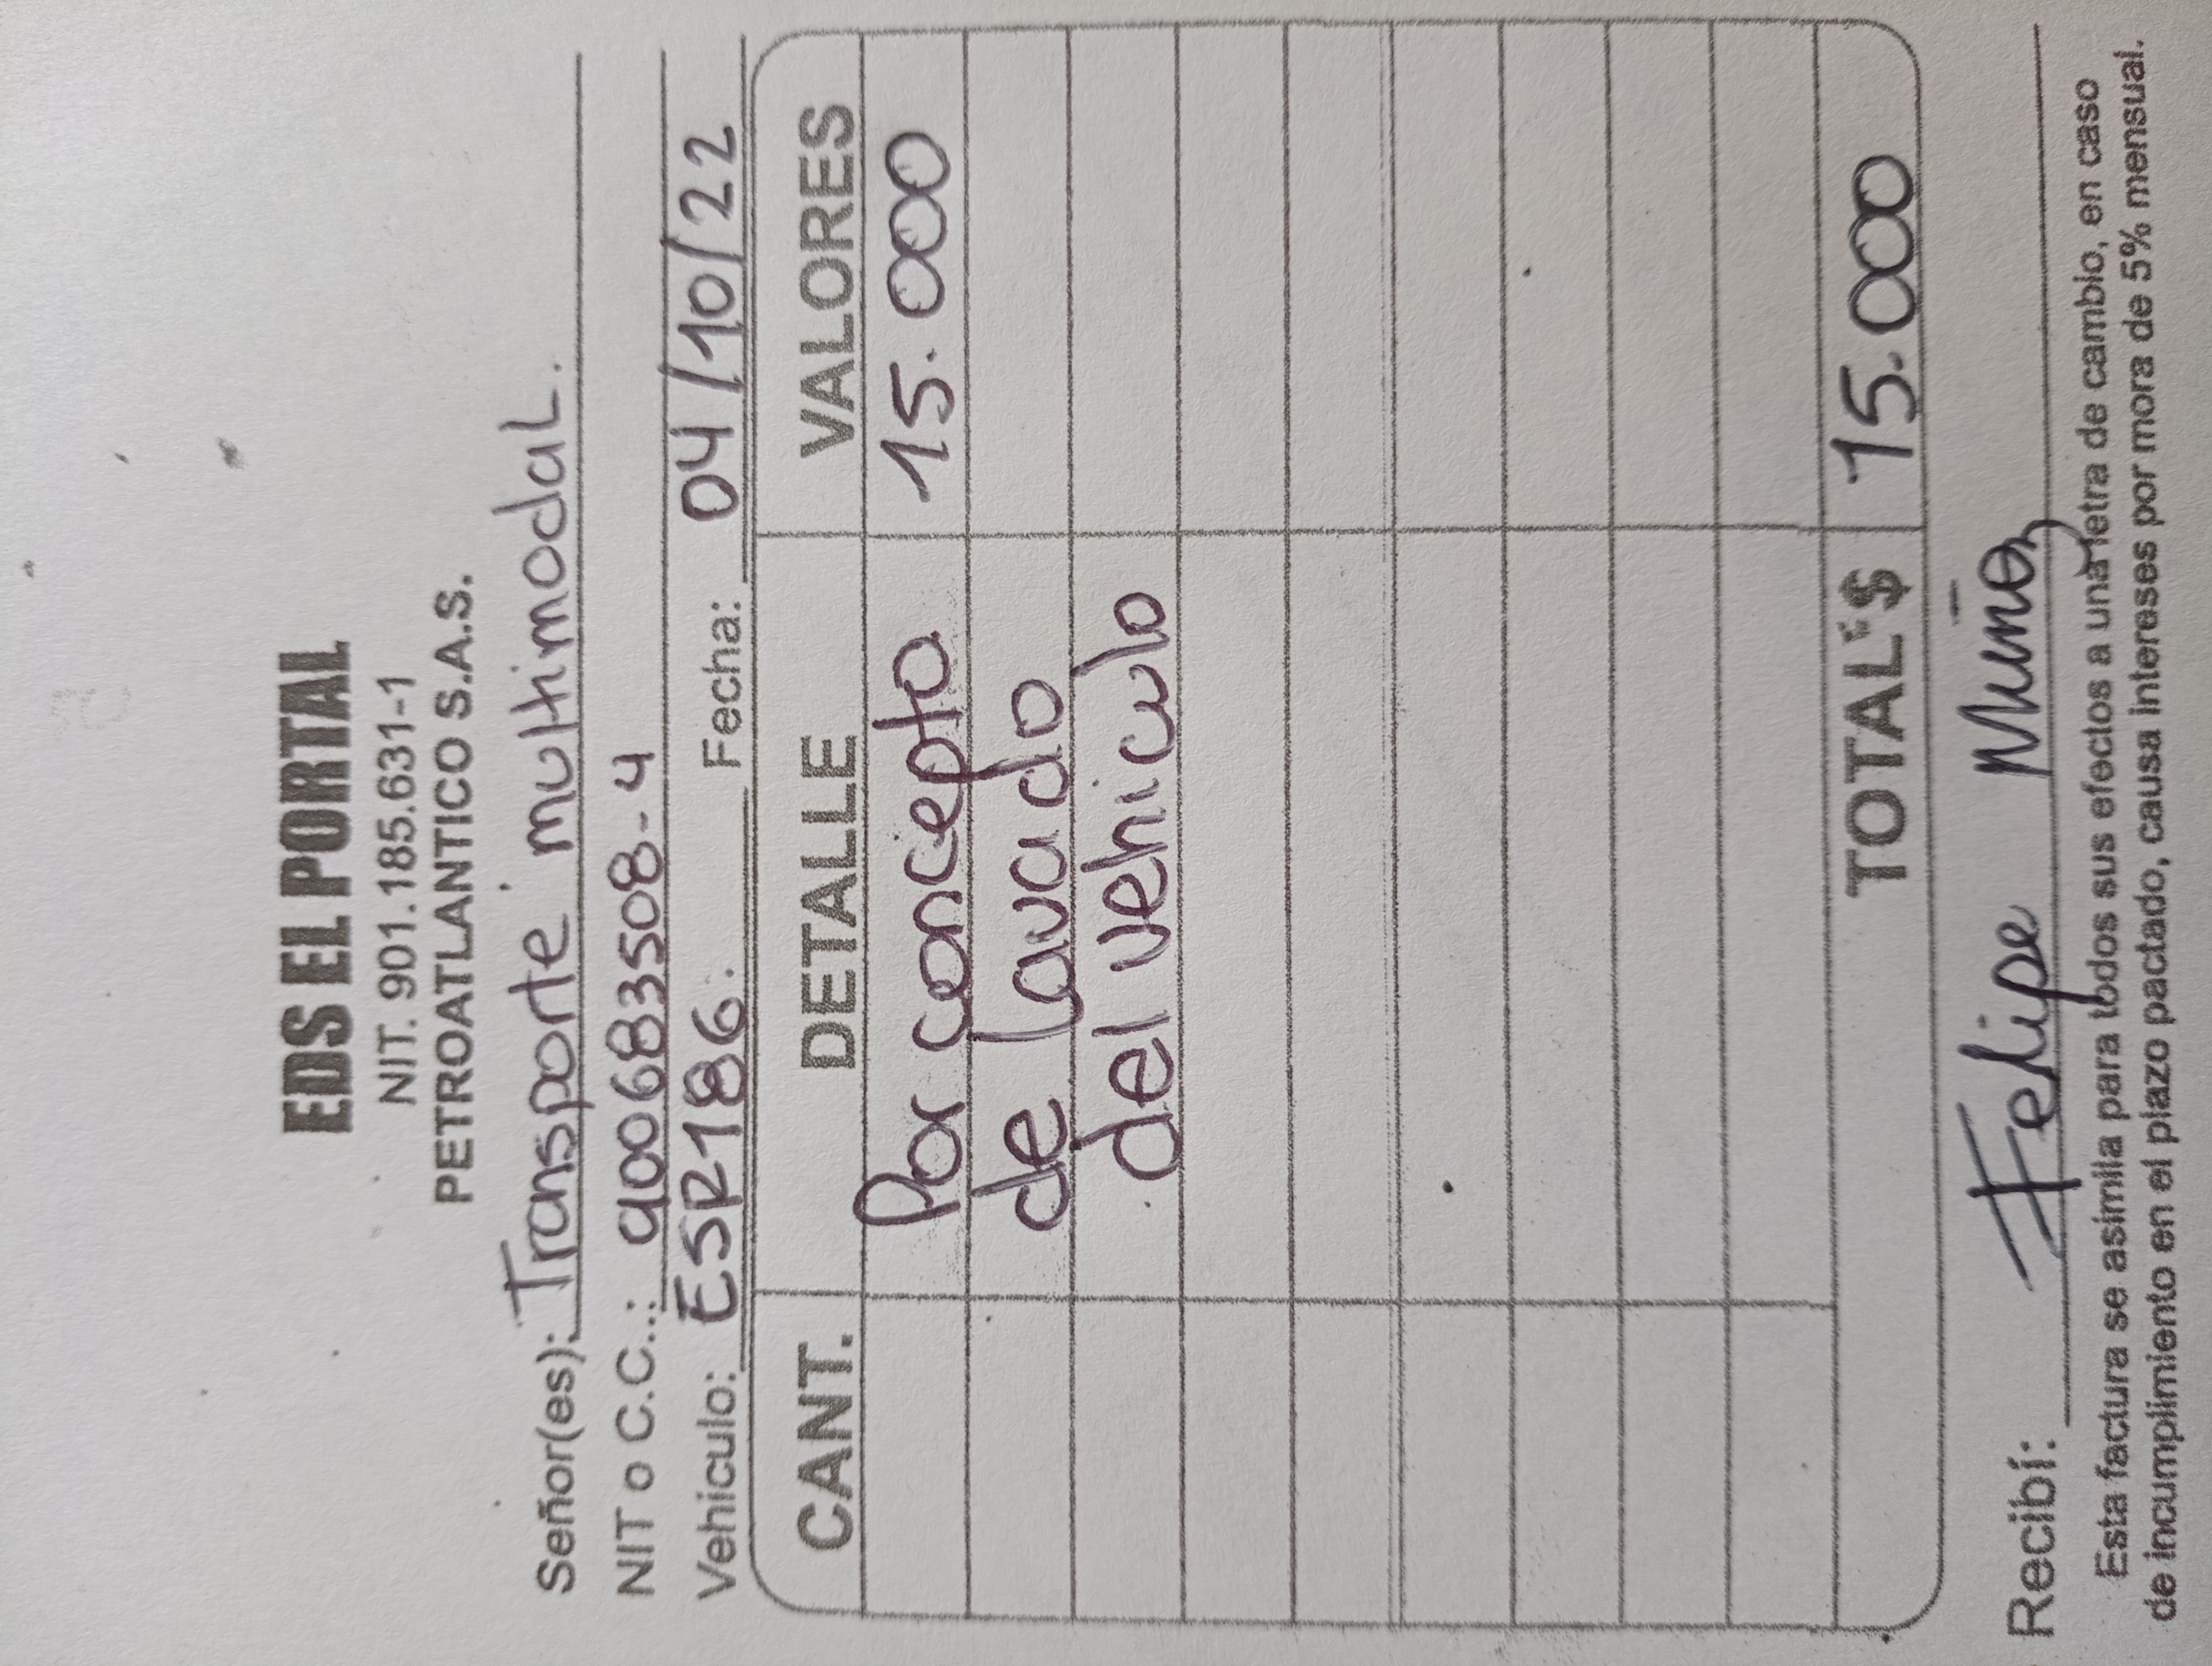 EDS EL PORTAL
NIT. 901.185.631-1
PETROATLANTICO S.A.S.
Señor(es): Transporte multimodal.
NIT o C.C..: 900683508-4
Vehiculo: ESR186. Fecha: 04/10/22
CANT. DETALLE VALORES
Por concepto 15.000
de lavado
del vehiculo
TOTAL $ 15.000
Recibí: Felipe Muñoz
Esta factura se asimila para todos sus efectos a una letra de cambio, en caso
de incumplimiento en el plazo pactado, causa intereses por mora de 5% mensual.